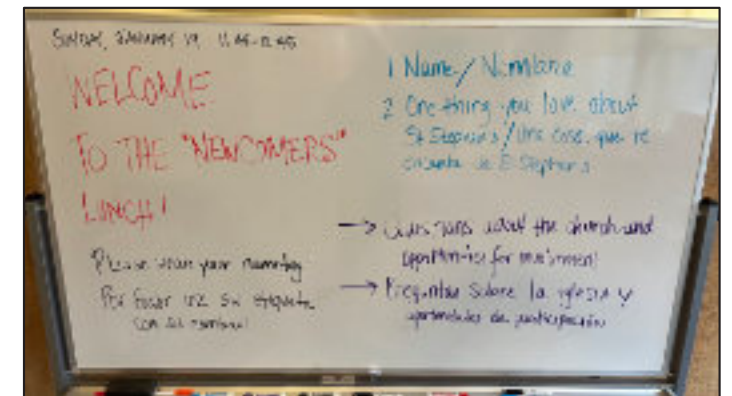 SUNDAY, JANUARY 19, 11:45-12:45
WELCOME
TO THE "NEWCOMERS"
LUNCH!
Please wear your nametag
Por favor use su etiqueta
con su nombre!
1 Name / Nombre
2 One thing you love about
St Stephen's / Una cosa que te
encanta de St Stephen's
→ Questions about the church and
opportunities for involvement
→ Preguntas sobre la iglesia y
oportunidades de participación